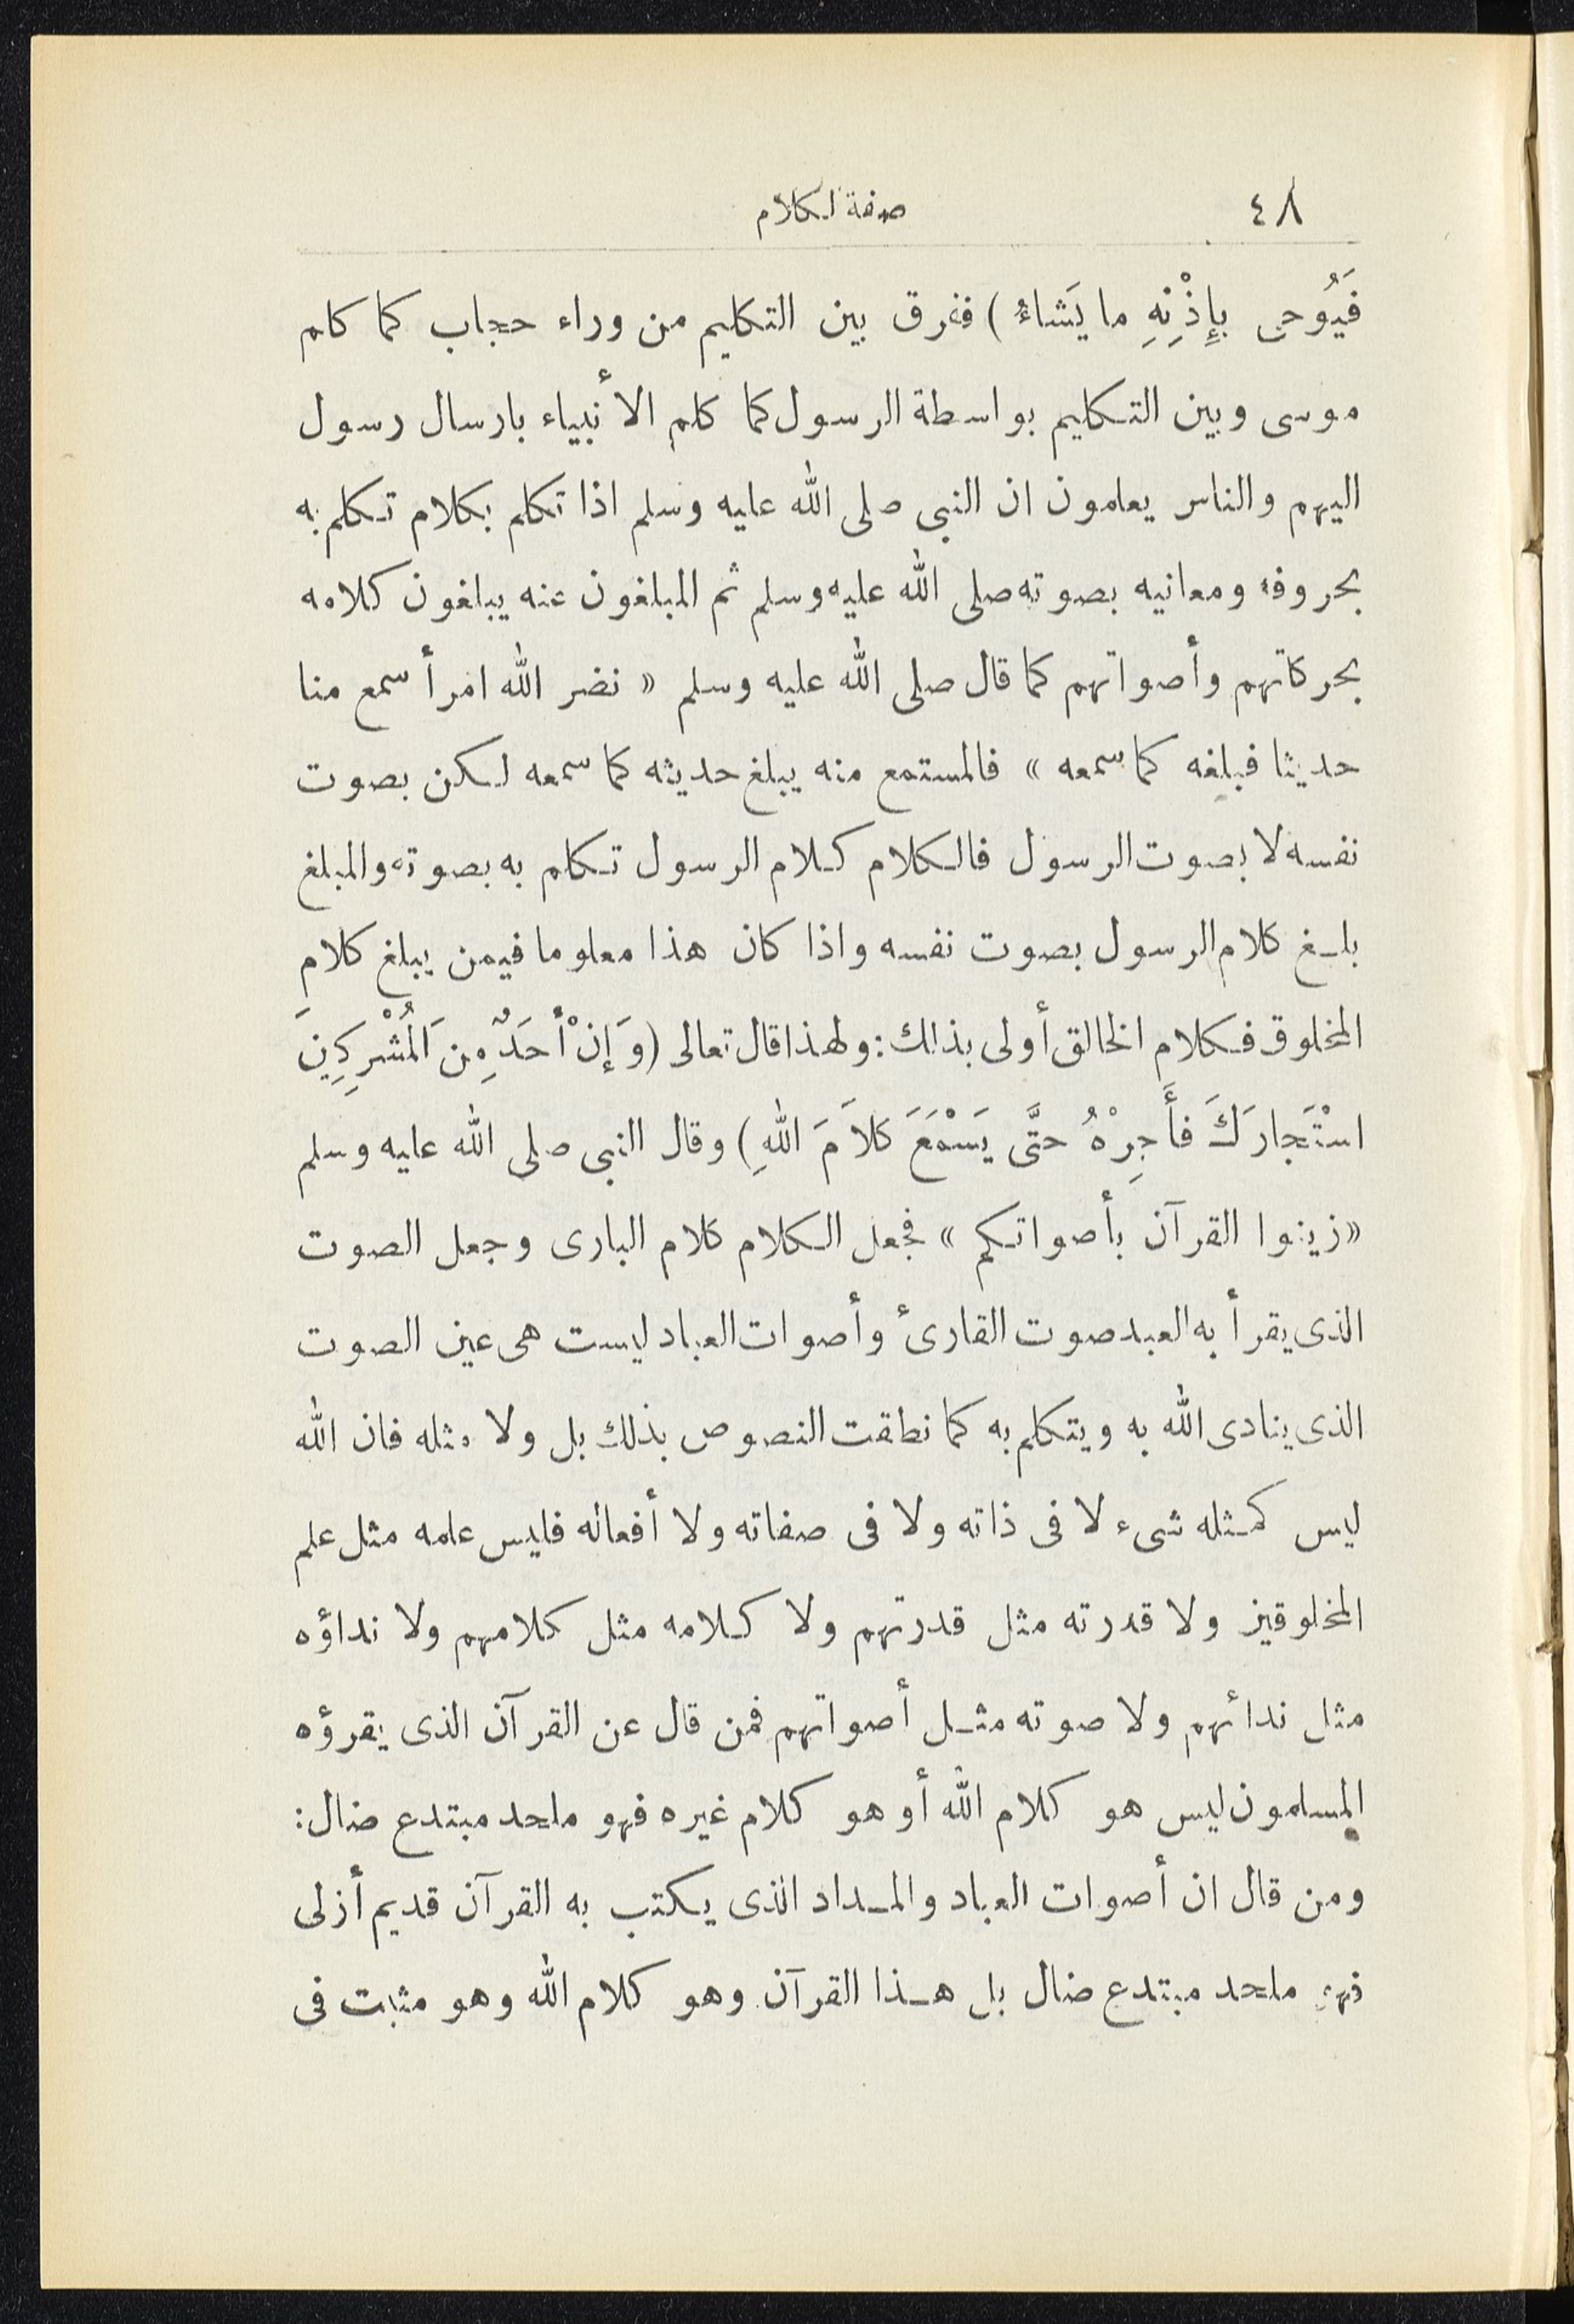 ٤٨
صفة الكلام
فَيُوحِىَ بِإِذْنِهِ ما يَشاءُ ) ففرق بين التكليم من وراء حجاب كما كلم
موسى وبين التكليم بواسطة الرسول كما كلم الأنبياء بارسال رسول
اليهم والناس يعلمون ان النبى صلى الله عليه وسلم اذا تكلم بكلام تكلم به
بحروفه ومعانيه بصوته صلى الله عليه وسلم ثم المبلغون عنه يبلغون كلامه
بحركاتهم وأصواتهم كما قال صلى الله عليه وسلم « نضر الله امرأ سمع منا
حديثا فبلغه كما سمعه » فالمستمع منه يبلغ حديثه كما سمعه لكن بصوت
نفسه لا بصوت الرسول فالكلام كلام الرسول تكلم به بصوته والمبلغ
بلغ كلام الرسول بصوت نفسه واذا كان هذا معلوما فيمن يبلغ كلام
المخلوق فكلام الخالق أولى بذلك : ولهذا قال تعالى ( وَإِنْ أَحَدٌ مِنَ الْمُشْرِكِينَ
اسْتَجارَكَ فَأَجِرْهُ حتَّى يَسْمَعَ كَلاَمَ اللهِ ) وقال النبى صلى الله عليه وسلم
« زينوا القرآن بأصواتكم » فجعل الكلام كلام البارى وجعل الصوت
الذى يقرأ به العبد صوت القارئ وأصوات العباد ليست هى عين الصوت
الذى ينادى الله به ويتكلم به كما نطقت النصوص بذلك بل ولا مثله فان الله
ليس كمثله شىء لا فى ذاته ولا فى صفاته ولا أفعاله فليس علمه مثل علم
المخلوقين ولا قدرته مثل قدرتهم ولا كلامه مثل كلامهم ولا نداؤه
مثل ندائهم ولا صوته مثل أصواتهم فمن قال عن القرآن الذى يقرؤه
المسلمون ليس هو كلام الله أو هو كلام غيره فهو ملحد مبتدع ضال :
ومن قال ان أصوات العباد والمداد الذى يكتب به القرآن قديم أزلى
فهو ملحد مبتدع ضال بل هذا القرآن وهو كلام الله وهو مثبت فى